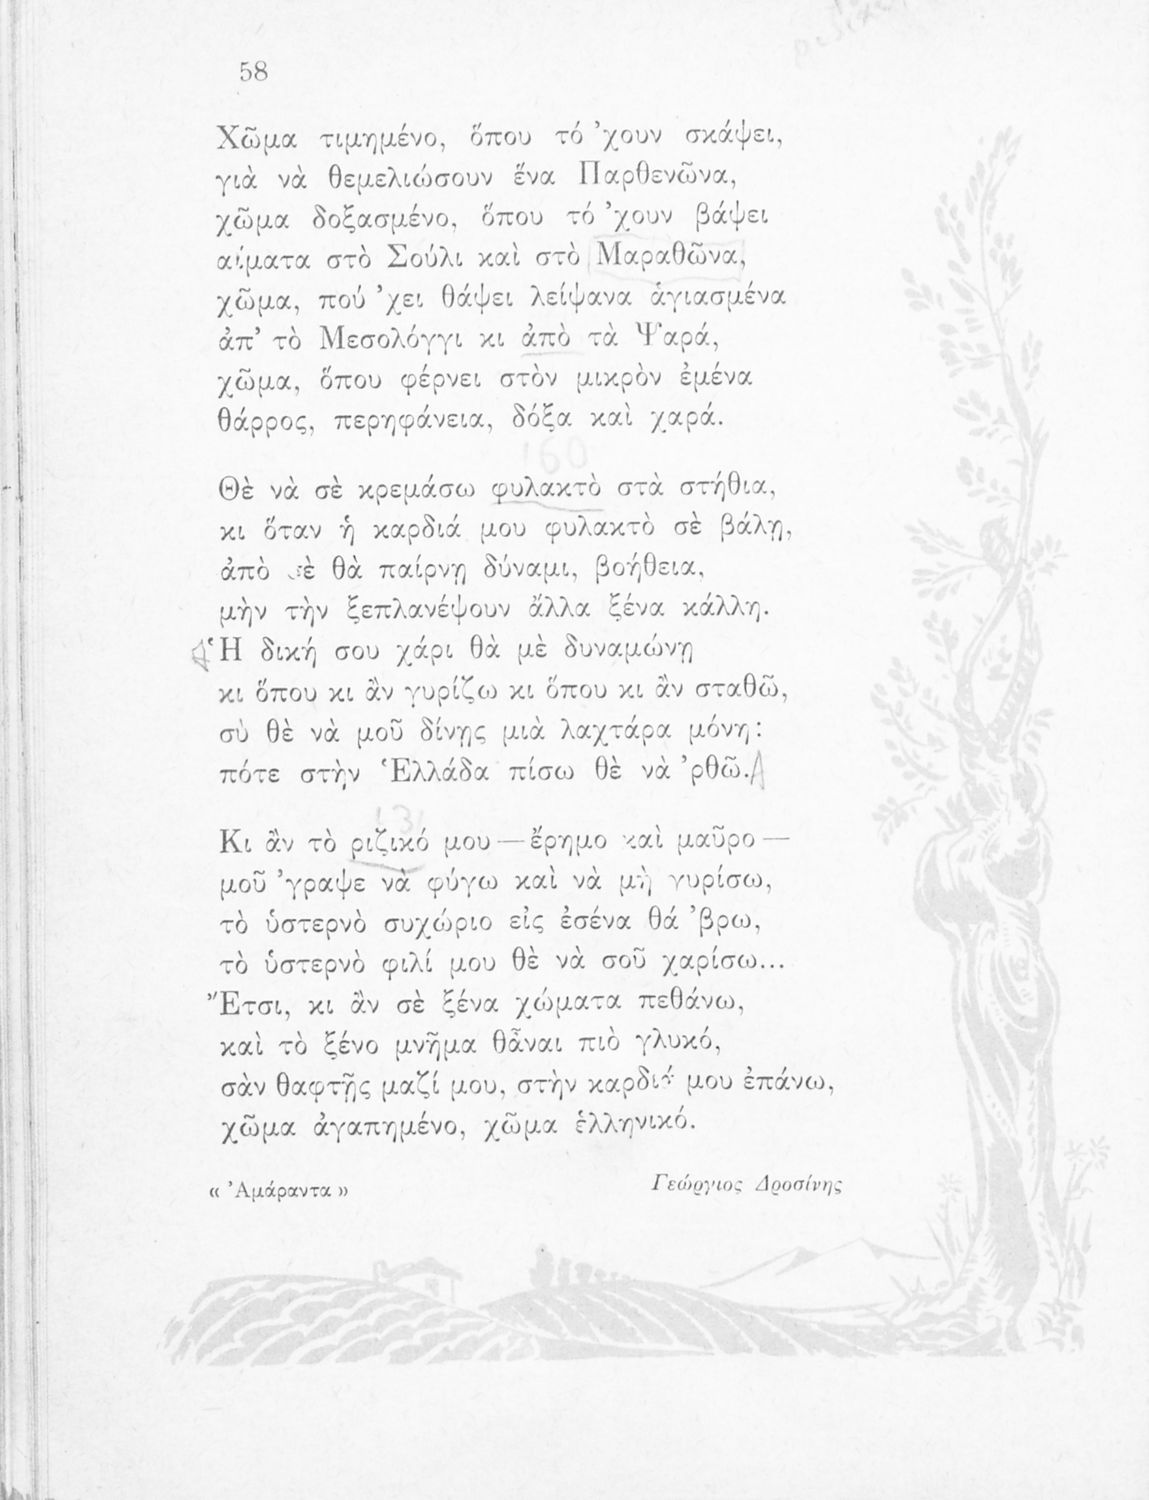 58
Χῶμα τιμημένο, ὅπου τό ’χουν σκάψει,
γιὰ νὰ θεμελιώσουν ἕνα Παρθενῶνα,
χῶμα δοξασμένο, ὅπου τό ’χουν βάψει
αἵματα στὸ Σούλι καὶ στὸ Μαραθῶνα,
χῶμα, πού ’χει θάψει λείψανα ἁγιασμένα
ἀπ’ τὸ Μεσολόγγι κι ἀπὸ τὰ Ψαρά,
χῶμα, ὅπου φέρνει στὸν μικρὸν ἐμένα
θάρρος, περηφάνεια, δόξα καὶ χαρά.
160
Θὲ νὰ σὲ κρεμάσω φυλακτὸ στὰ στήθια,
κι ὅταν ἡ καρδιά μου φυλακτὸ σὲ βάλῃ,
ἀπὸ σὲ θὰ παίρνῃ δύναμι, βοήθεια,
μὴν τὴν ξεπλανέψουν ἄλλα ξένα κάλλη.
Ἡ δική σου χάρι θὰ μὲ δυναμώνῃ
κι ὅπου κι ἂν γυρίζω κι ὅπου κι ἂν σταθῶ,
σὺ θὲ νὰ μοῦ δίνῃς μιὰ λαχτάρα μόνη:
πότε στὴν Ἑλλάδα πίσω θὲ νὰ ’ρθῶ.
131
Κι ἂν τὸ ριζικό μου — ἔρημο καὶ μαῦρο —
μοῦ ’γραψε νὰ φύγω καὶ νὰ μὴ γυρίσω,
τὸ ὑστερνὸ συχώριο εἰς ἐσένα θά ’βρω,
τὸ ὑστερνὸ φιλί μου θὲ νὰ σοῦ χαρίσω...
Ἔτσι, κι ἂν σὲ ξένα χώματα πεθάνω,
καὶ τὸ ξένο μνῆμα θἆναι πιὸ γλυκό,
σὰν θαφτῇς μαζί μου, στὴν καρδιά μου ἐπάνω,
χῶμα ἀγαπημένο, χῶμα ἑλληνικό.
« Ἀμάραντα »
Γεώργιος Δροσίνης